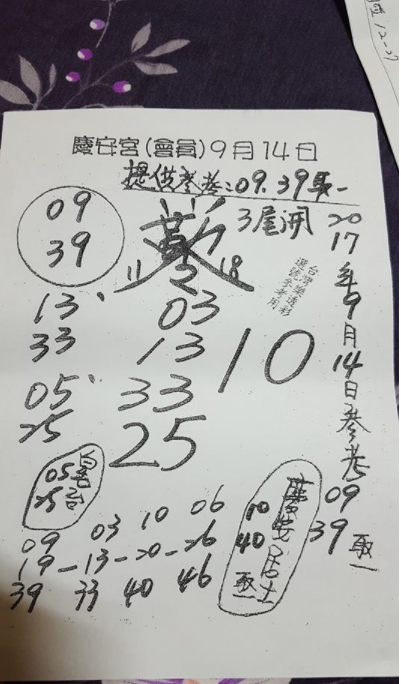 慶安宮(會員)9月14日
提供參考:09.39取一
09
39
11
18
3尾開
2017年9月14日參考
09
39 取一
台灣樂透彩
選號參考用
13、
33
05、
25
03
13
33
25
10
05
25
慶安居士
10
40 取一
09 03 10 06
19-13-20-26
39 33 40 46
12-27